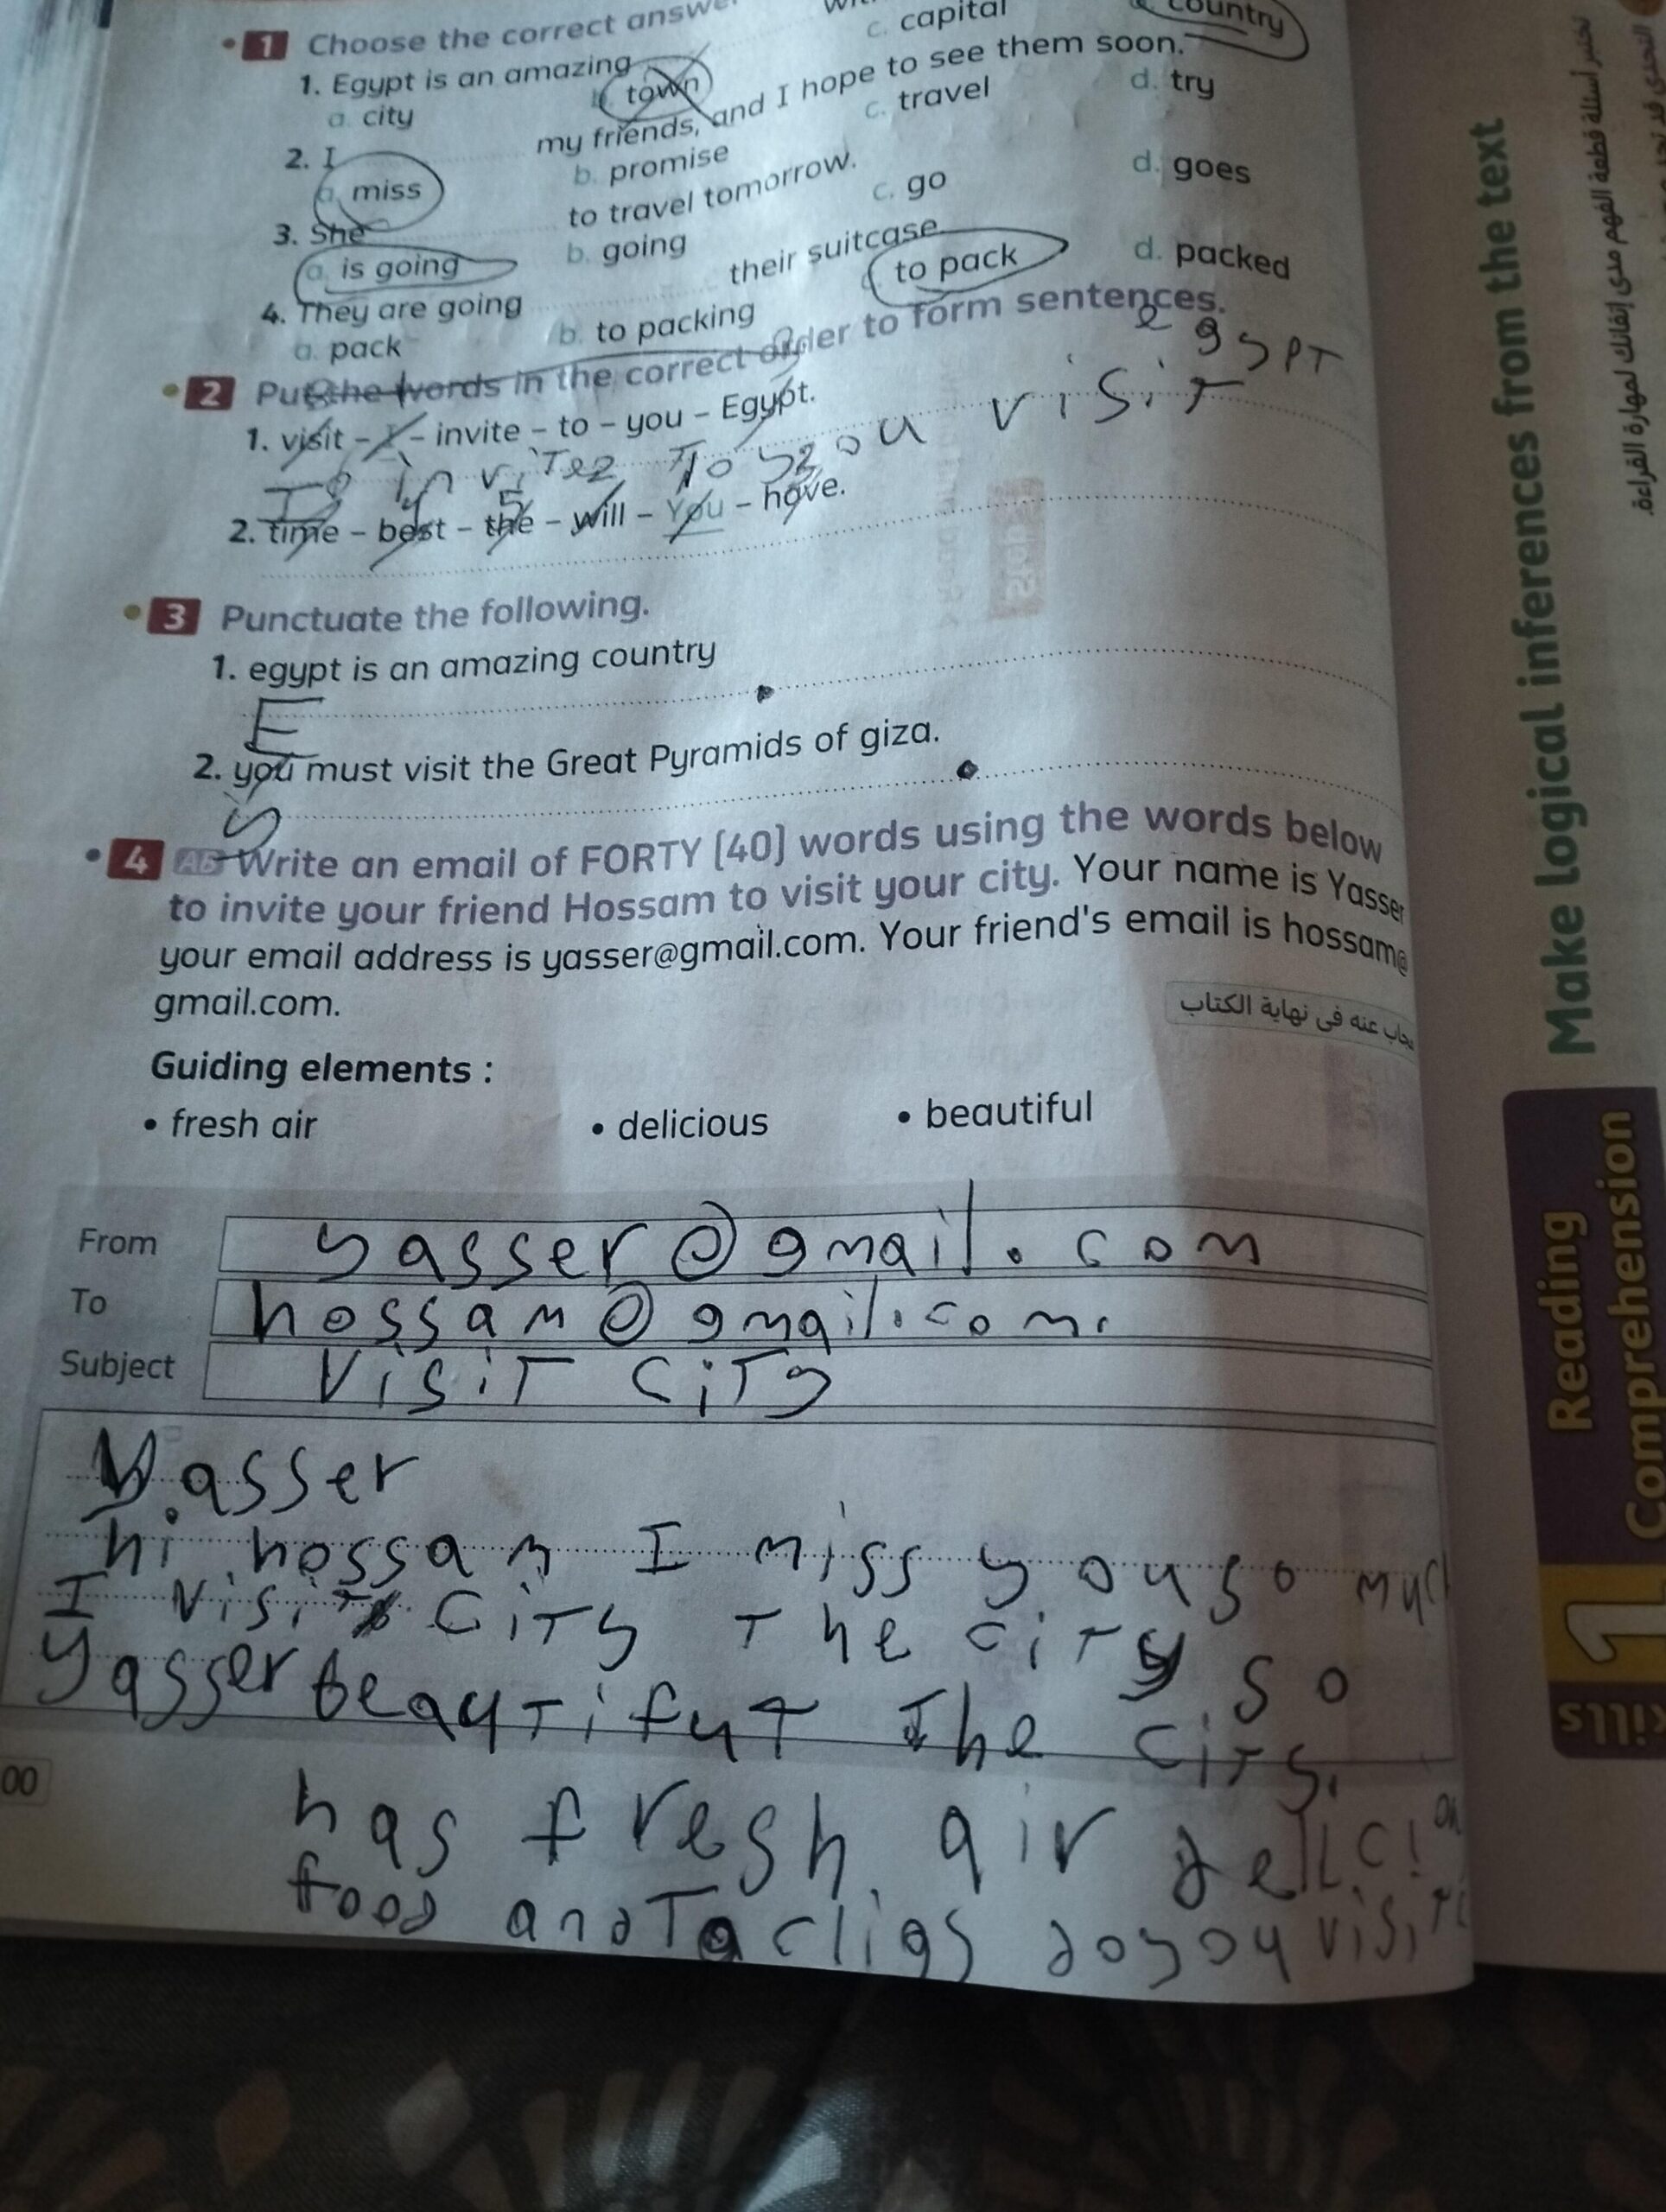 1 Choose the correct
1. Egypt is an amazing
a. city town c. capital country
2. I my friends, and I hope to see them soon.
a. miss b. promise c. travel d. try
3. She to travel tomorrow.
a. is going b. going c. go d. goes
4. They are going their suitcase.
a. pack b. to packing to pack d. packed
2 Put the words in the correct order to form sentences.
1. visit – I – invite – to – you – Egypt.
egypt
I invite To you visit
2. time – best – the – will – You – have.
3 Punctuate the following.
1. egypt is an amazing country
E
2. you must visit the Great Pyramids of giza.
y
4 AB Write an email of FORTY (40) words using the words below
to invite your friend Hossam to visit your city. Your name is Yasser
your email address is yasser@gmail.com. Your friend's email is hossam@
gmail.com.
مجاب عنه فى نهاية الكتاب
Guiding elements :
• fresh air • delicious • beautiful
From yasser@gmail.com
To hossam@gmail.com.
Subject Visit city
Yasser
hi hossam I miss you so much
I visit city The city so
yasser beautifut The city.
has fresh air
food and doyou
00
Make Logical inferences from the text
نختبر أسئلة قطعة الفهم مدى إتقانك لمهارة القراءة.
Reading
Comprehension
kills 1